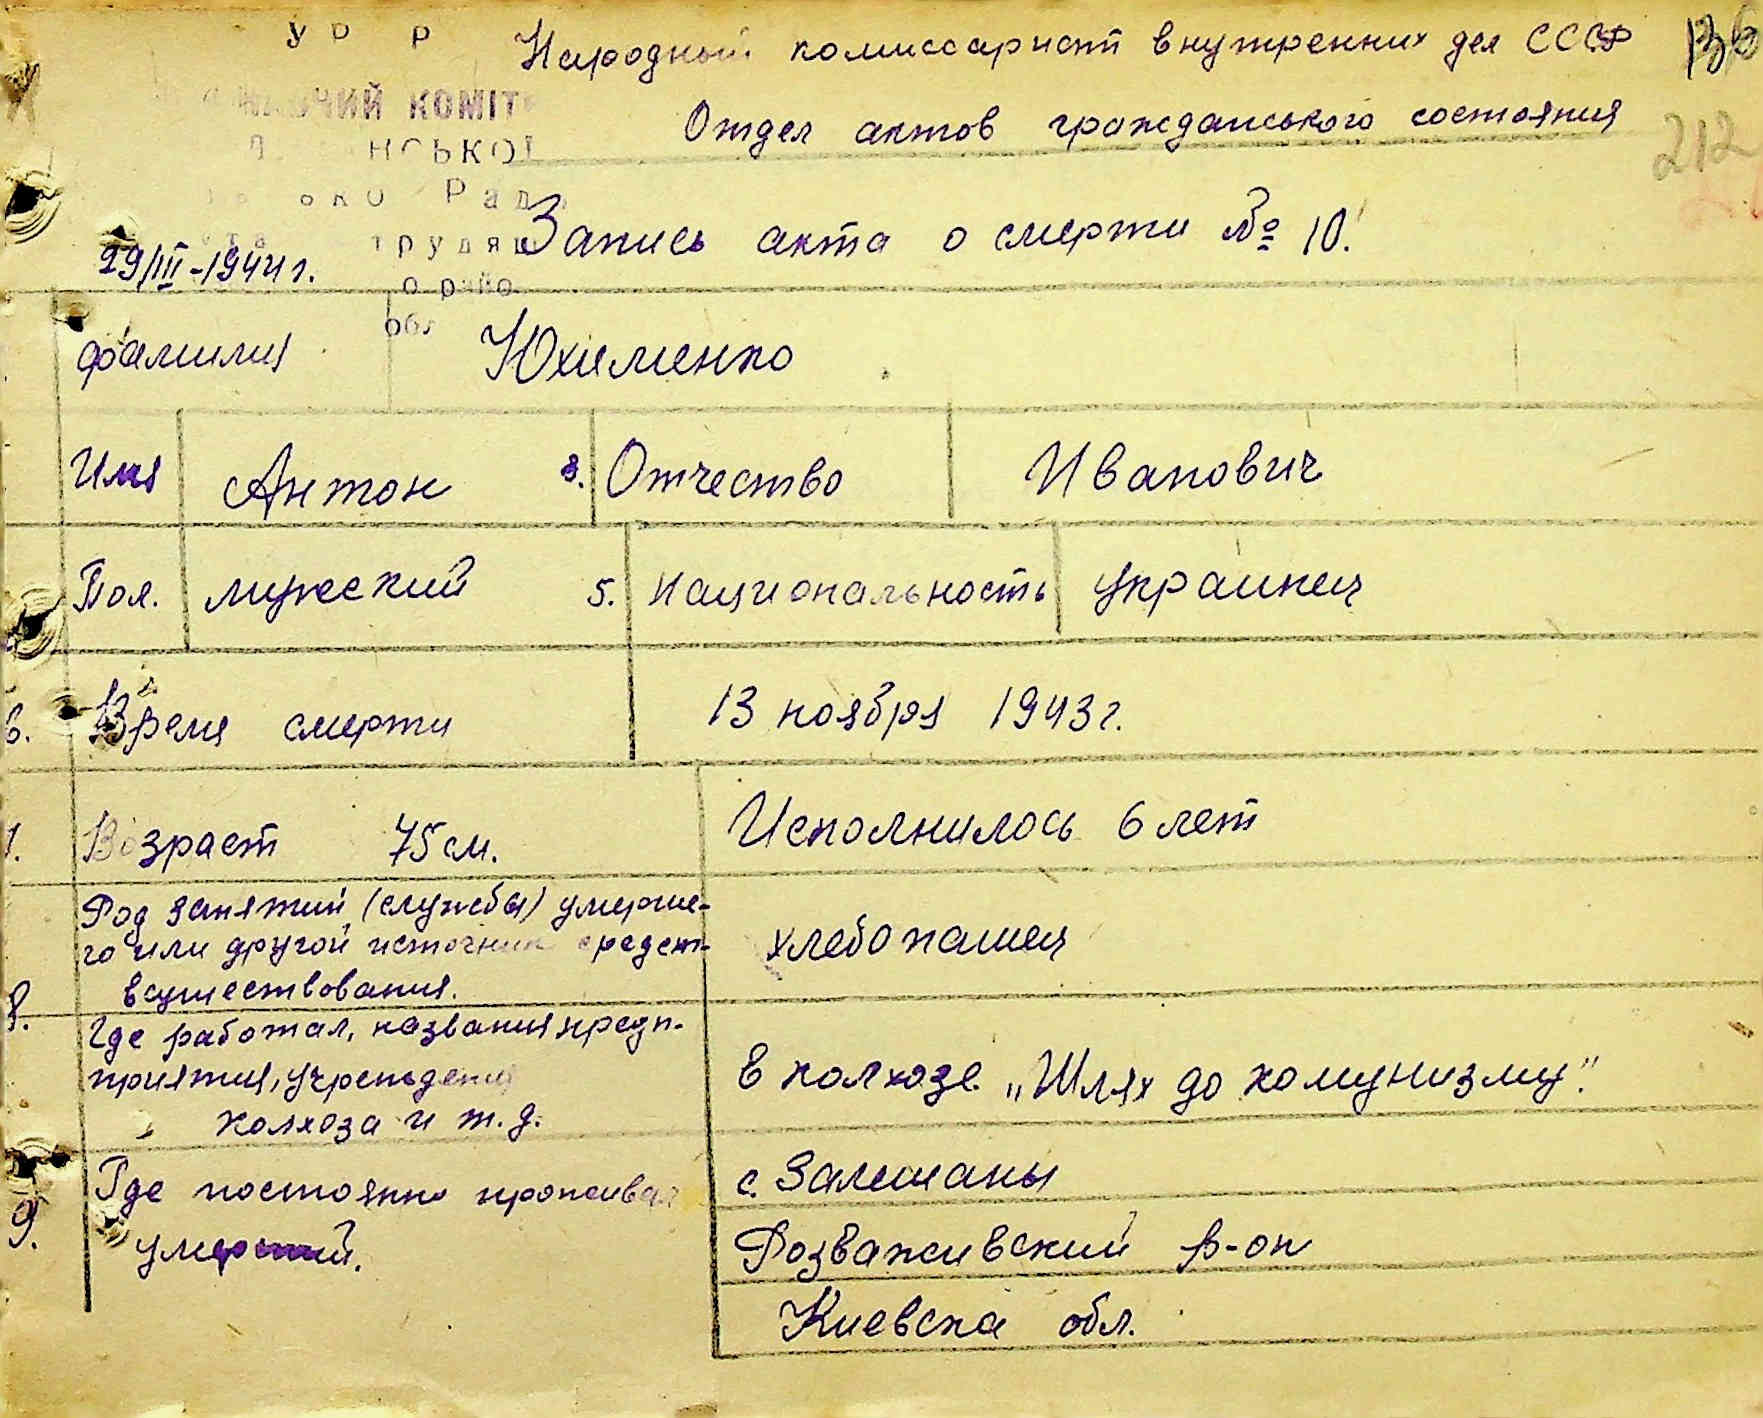 У Р Р
Народный комиссариат внутренних дел СССР
136
КОМІТ
Отдел актов гражданського состояния
212
НСЬКОЇ
Рад
Запись акта о смерти № 10.
трудящ
29/III-1944 г.
обл
фамилия Юхименко
Имя Антон 3. Отчество Иванович
Пол. мужеский 5. Национальность украинец
6. Время смерти 13 ноября 1943 г.
7. Возраст 75 см. Исполнилось 6 лет
Род занятий (службы) умерше-
го или другой источник средст-
в существования. хлебопашец
8. Где работал, названия предп-
приятия, учреждения в колхозе „Шлях до комунизму".
колхоза и т. д.
9. Где постоянно проживал с. Залешаны
умерший. Розваживский р-он
Киевска обл.